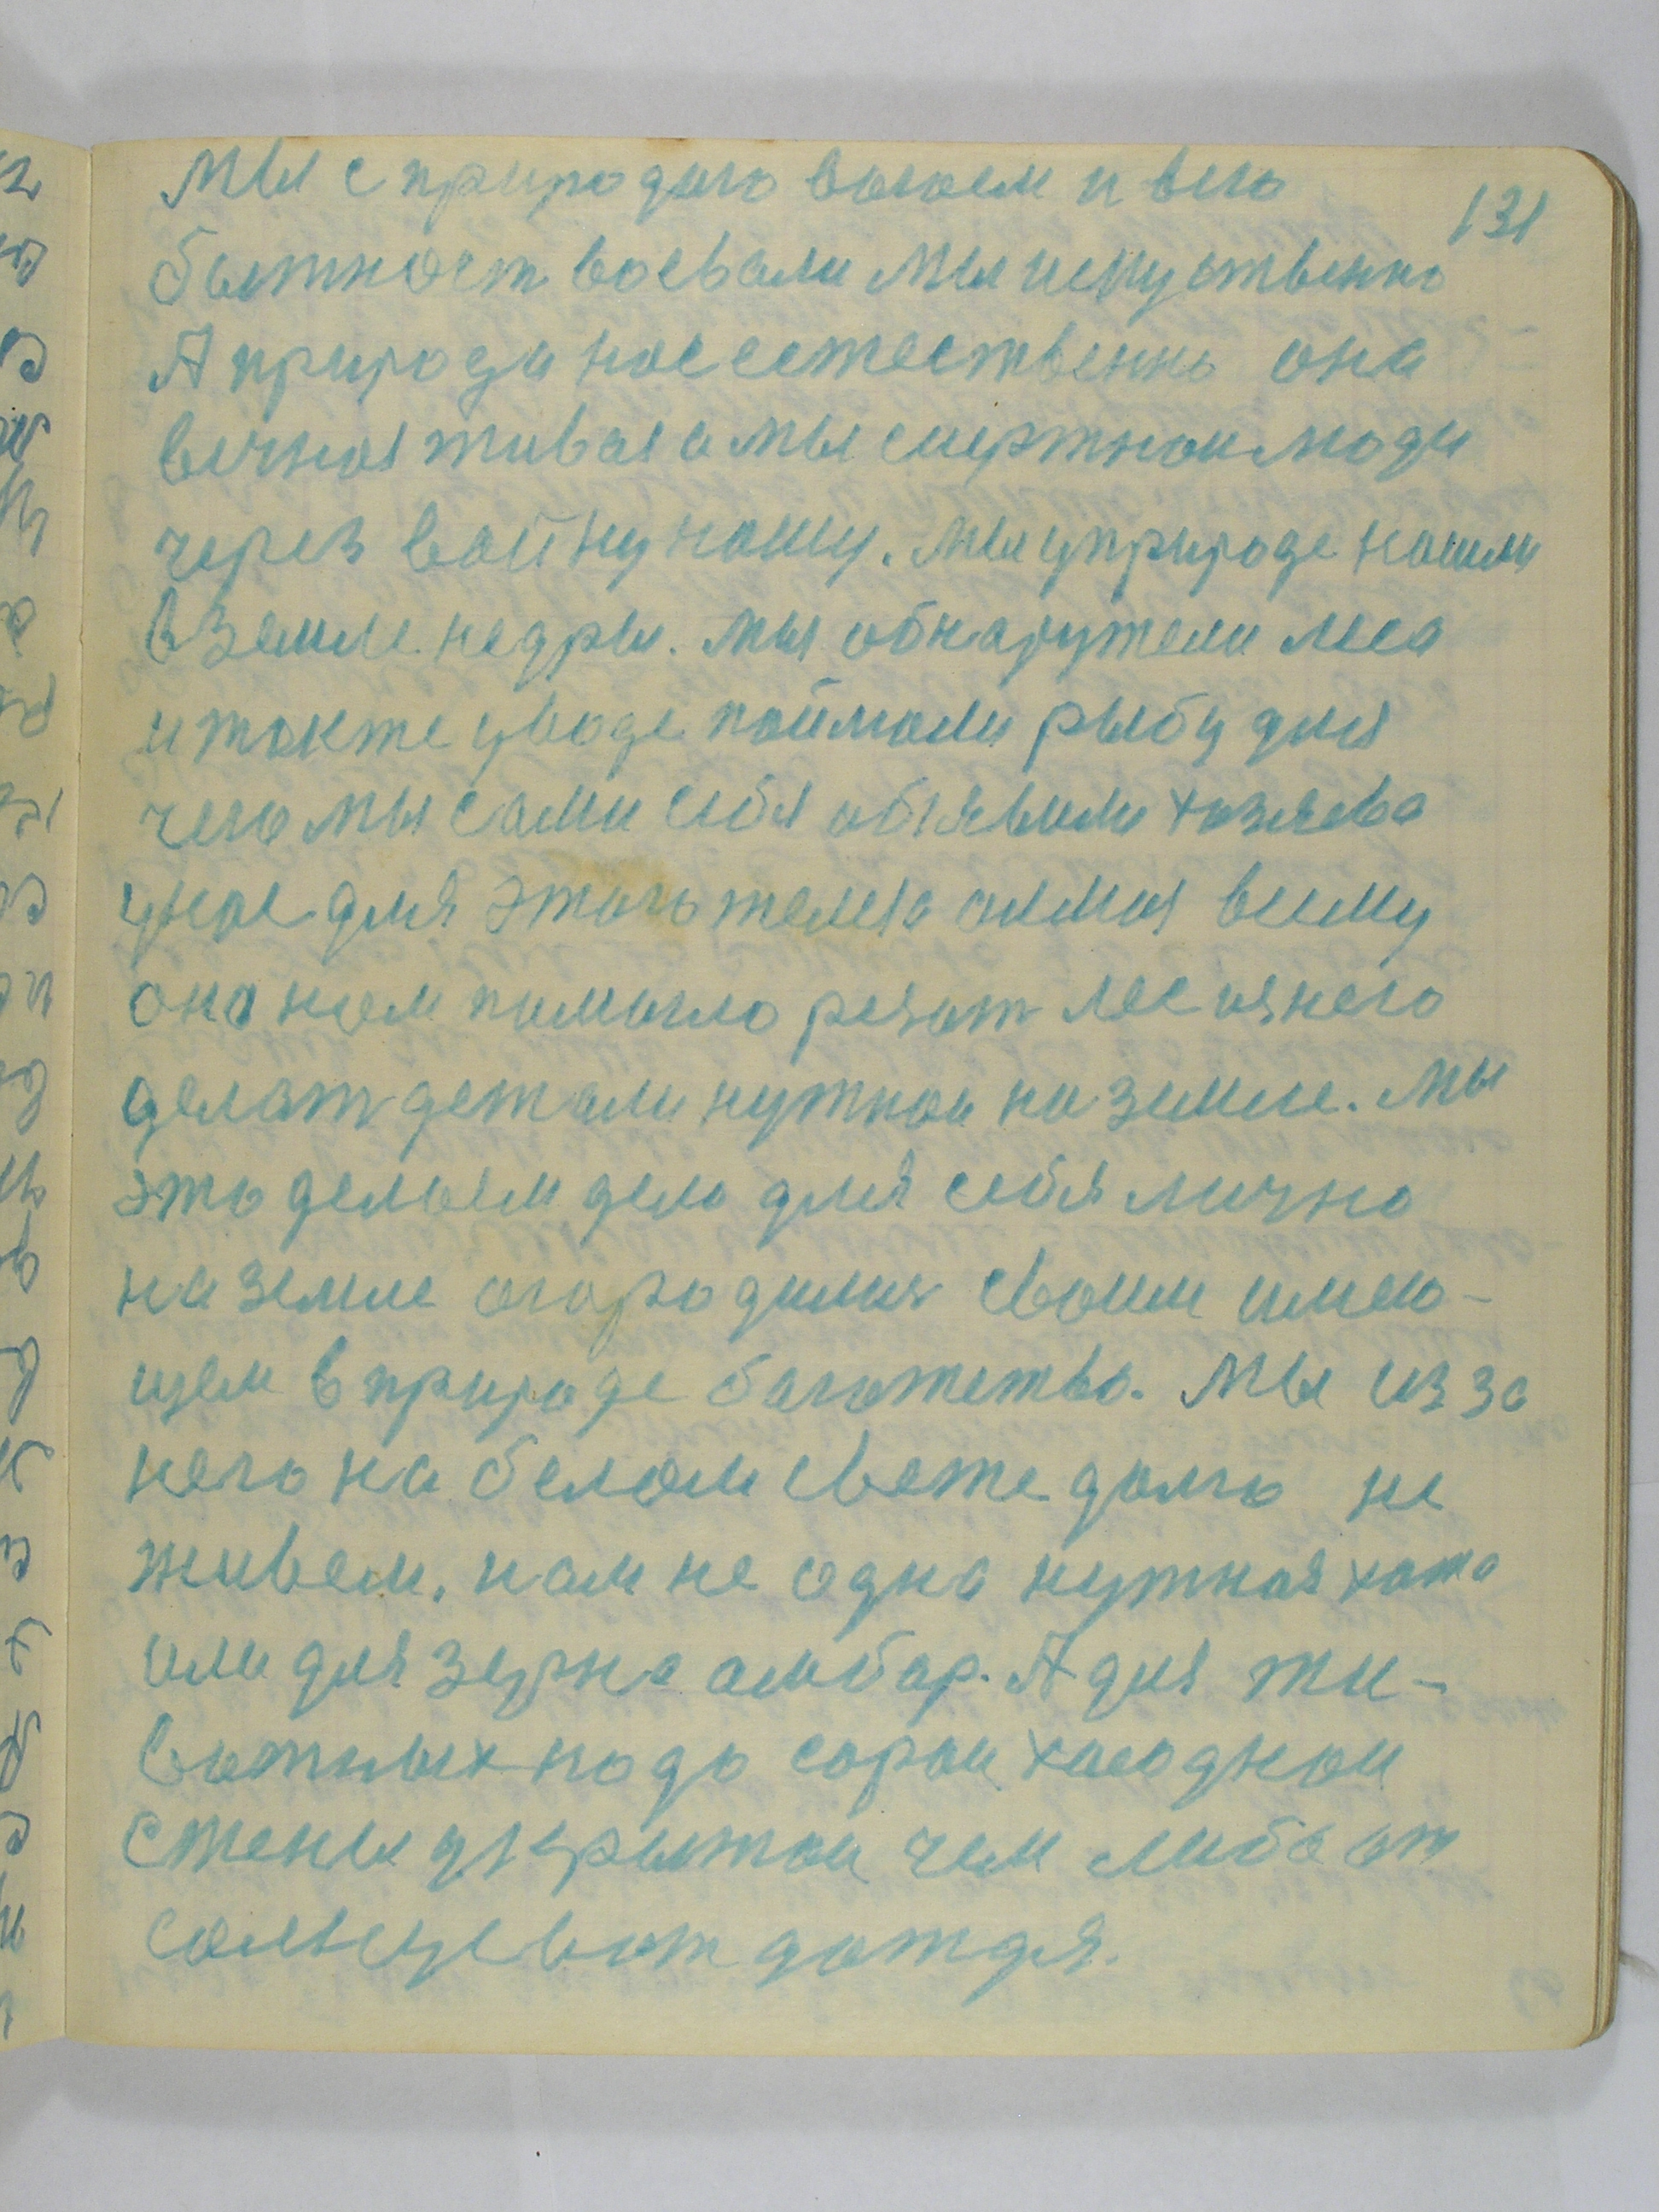 131
Мы с природою воюем и всю
бытност воевали мы искуственно
А природа нас естественно она
вечная живая а мы смертнои люди
через войну нашу. Мы у природе нашли
в земле недры. Мы обнаружели леса
и также у воде поймали рыбу для
чего мы сами себя обявили хозяева
у нас для этого
оно нам помогло резат лес из него
делат детали нужнои на земле. Мы
это делаем дело для себя лично
на земле огородилися своим имею-
щем в природе багатство. Мы из за
него на белом свете долго не
живем, нам не одна нужная хата
или для зерна амбар. А для жи-
вотных надо сараи холоднои
стены укрытои чем либо от
солнца от дождя.